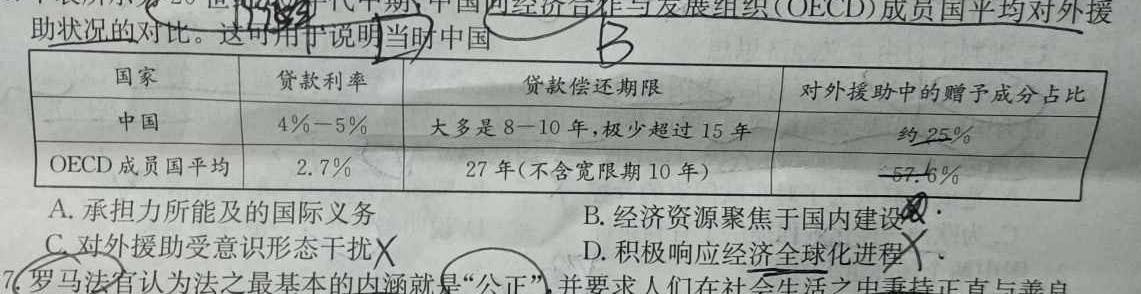 中国同经济合作与发展组织(OECD)成员国平均对外援
助状况的对比。这可用于说明当时中国
B
国家 贷款利率 贷款偿还期限 对外援助中的赠予成分占比
中国 4%－5% 大多是8－10年,极少超过15年 约25%
OECD成员国平均 2.7% 27年(不含宽限期10年) 57.6%
A. 承担力所能及的国际义务 B. 经济资源聚焦于国内建设
C. 对外援助受意识形态干扰 D. 积极响应经济全球化进程
7. 罗马法官认为法之最基本的内涵就是“公正”,并要求人们在社会生活之中秉持正直与善良